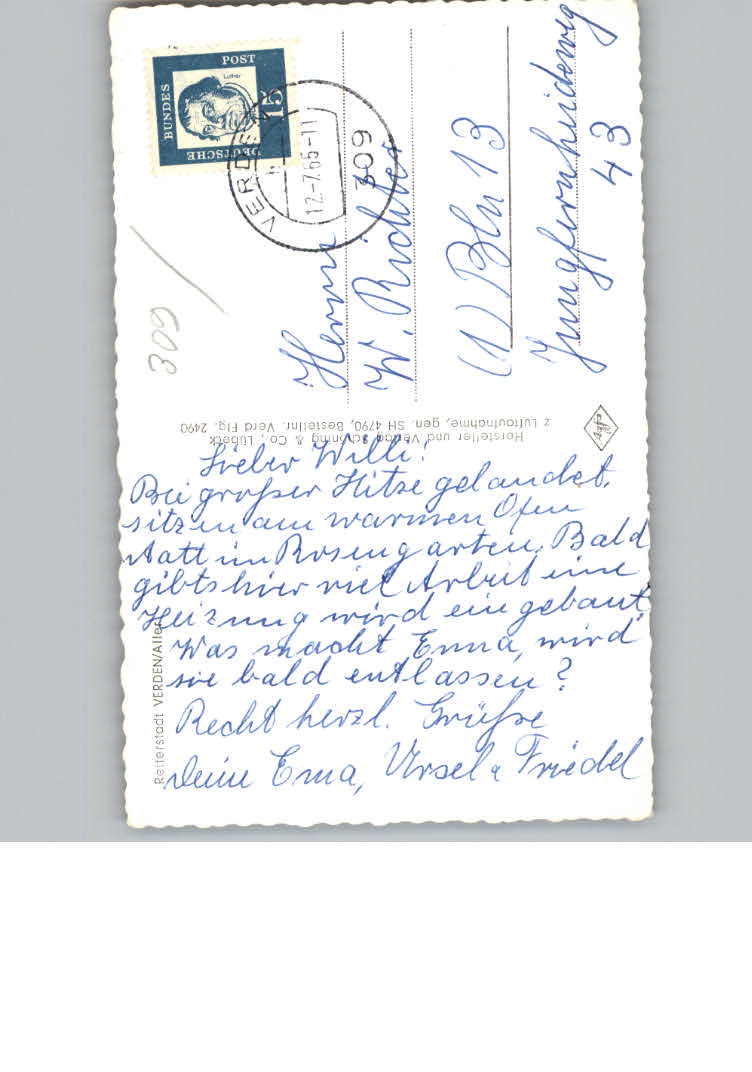 Lieber Willi!
Bei großer Hitze gelandet,
sitzen am warmen Ofen
statt im Rosengarten. Bald
gibts hier viel Arbeit eine
Heizung wird eingebaut.
Was macht Erna, wird
sie bald entlassen?
Recht herzl. Grüße
Deine Erna, Ursel u Friedel
Herrn
W. Richter
(1) Bln 13
Jungfernheideweg
43
DEUTSCHE
BUNDES
POST
Luther
15
VERDEN
12-7.65-11
309
309
Reiterstadt VERDEN/Aller
Hersteller und Verlag Schöning & Co., Lübeck
z Luftaufnahme, gen. SH 4790, Bestellnr. Verd Flg. 2490
Agfa